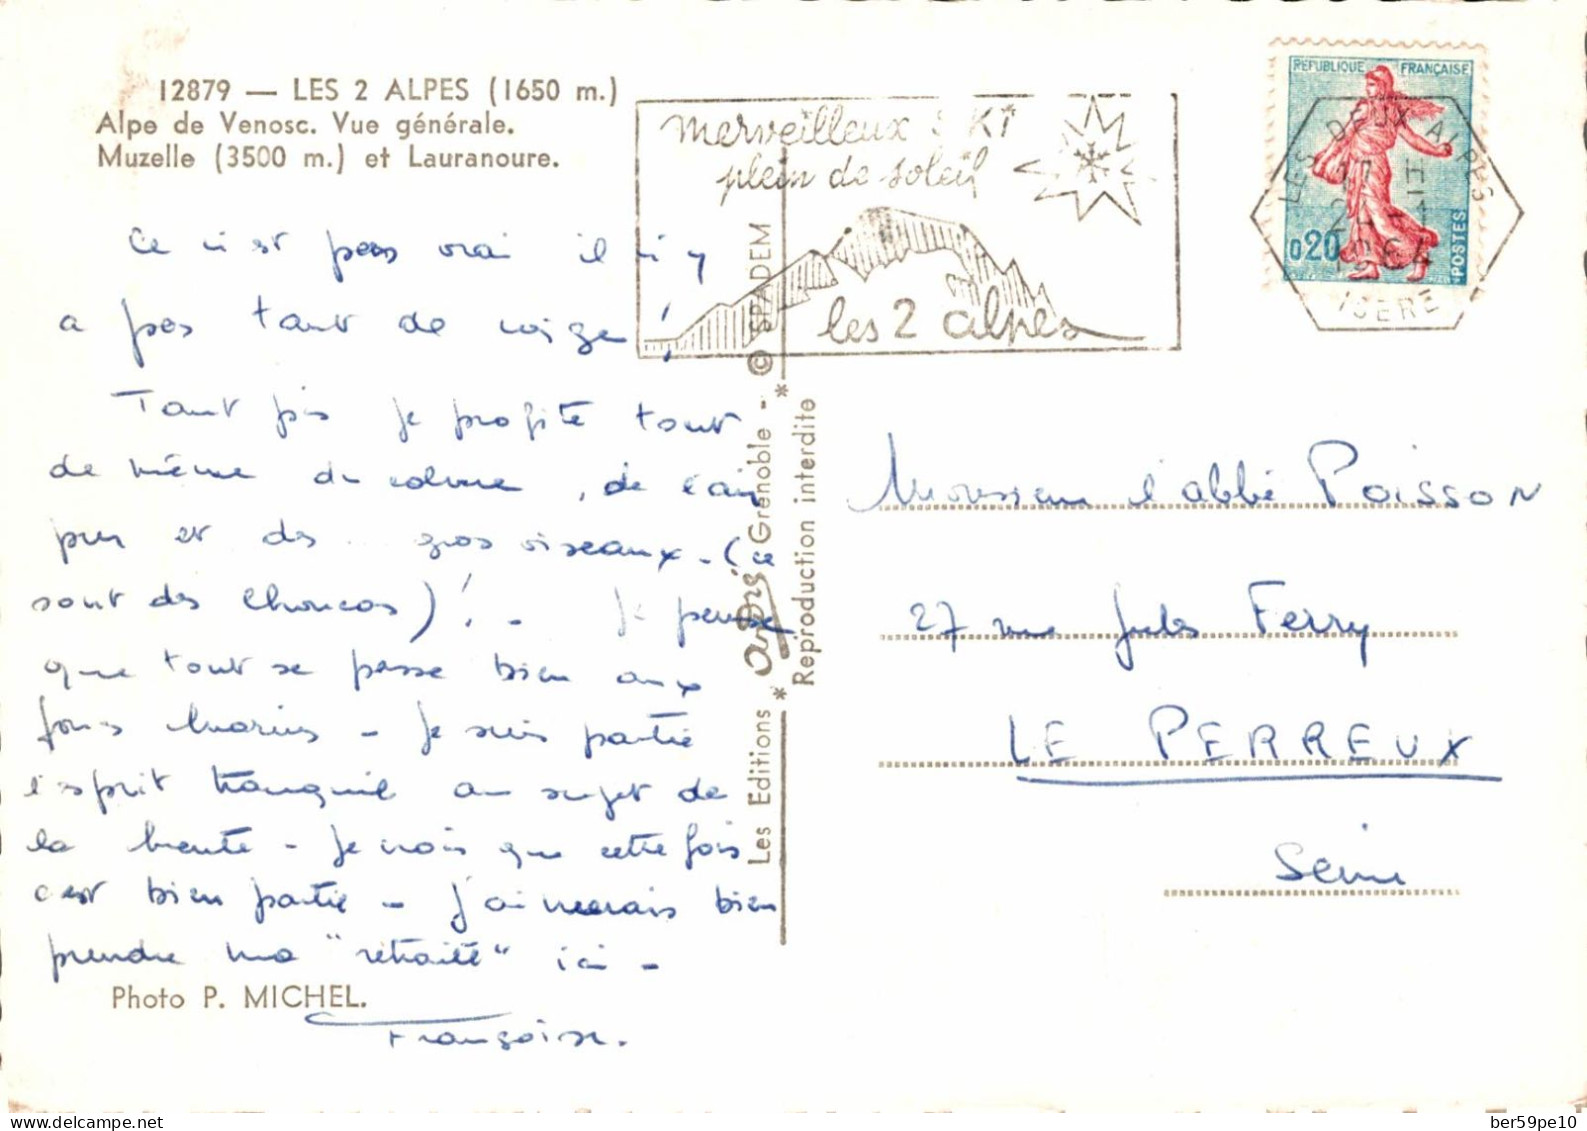 12879 — LES 2 ALPES (1650 m.)
Alpe de Venosc. Vue générale.
Muzelle (3500 m.) et Lauranoure.
Ce n'est pas vrai il n'y
a pas tant de neige !
Tant pis je profite tout
de même du calme, de l'air
pur et des gros oiseaux - (ce
sont des choucas) ! - Je pense
que tout se passe bien aux
- Je suis partie
l'esprit tranquil au sujet de
la - Je crois que cette fois
c'est bien partie - J'aimerais bien
prendre ma "retraite" ici -
Françoise.
Photo P. MICHEL.
Les Editions ANDRIS Grenoble - © SPADEM
* Reproduction interdite *
merveilleux SKI
plein de soleil
les 2 alpes
REPUBLIQUE FRANÇAISE
0,20
POSTES
LES DEUX ALPES
17 H
24 -
1964
ISERE
Monsieur l'abbé POISSON
27 rue Jules Ferry
LE PERREUX
Seine
delcampe.net
ber59pe10